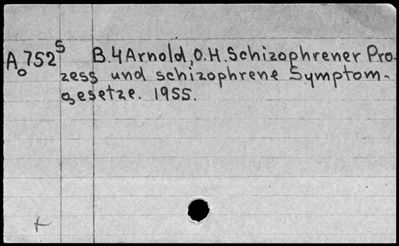 A₀752⁵ B.4 Arnold, O.H. Schizophrener Pro-
zess und schizophrene Symptom-
gesetze. 1955.